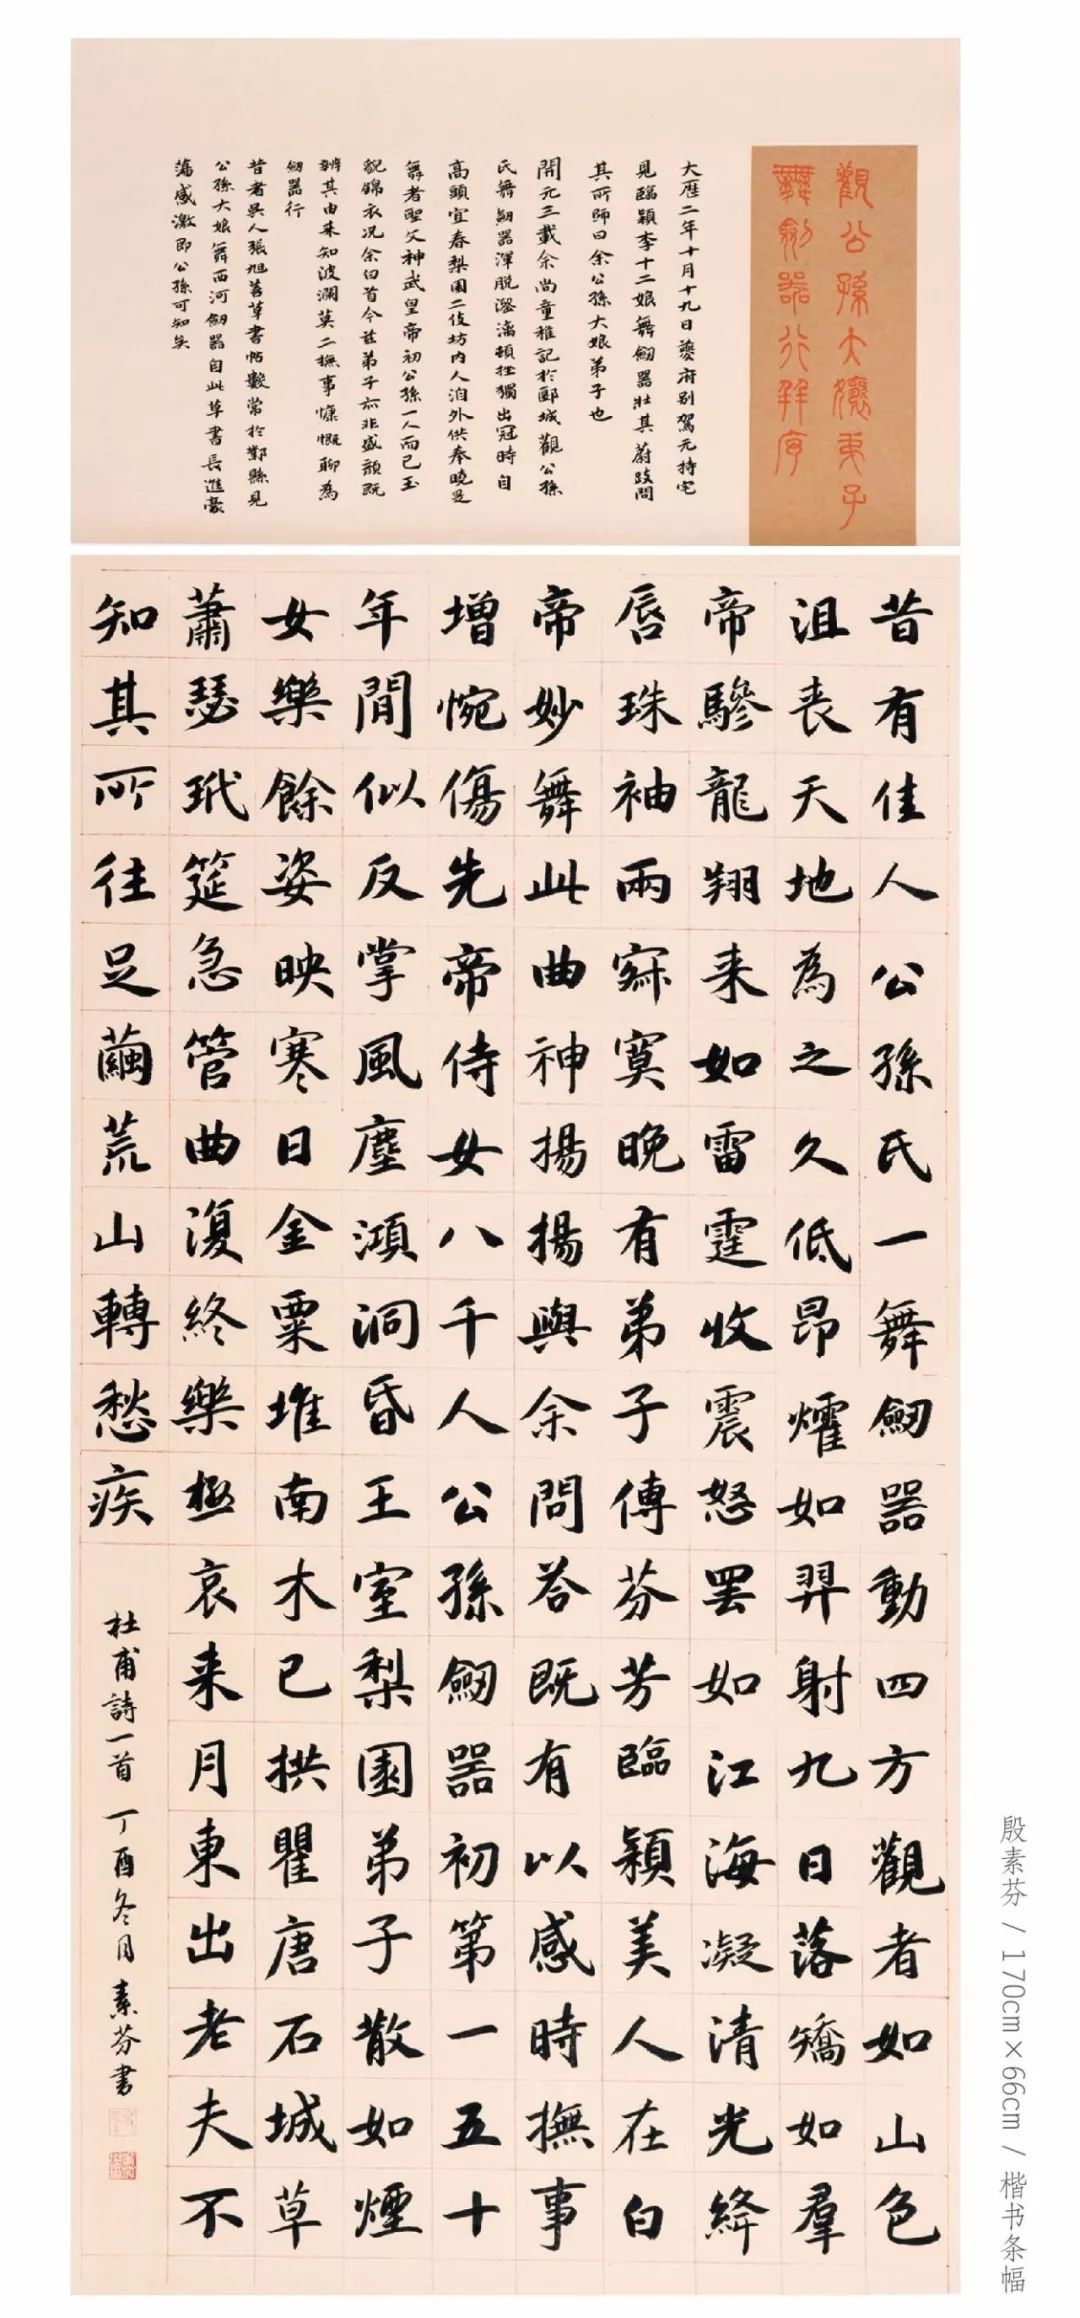 觀公孫大孃弟子
舞劒器行并序
大歷二年十月十九日夔府别駕元持宅
見臨穎李十二娘舞劒器壯其蔚跂問
其所師曰余公孫大娘弟子也
開元三載余尚童稚記於郾城觀公孫
氏舞劒器渾脱瀏漓頓挫獨出冠時自
高頭宜春梨園二伎坊内人洎外供奉曉是
舞者聖文神武皇帝初公孫一人而已玉
貌錦衣况余白首今兹弟子亦非盛顔既
辨其由来知波瀾莫二撫事慷慨聊為
劒器行
昔者吴人張旭善草書帖數常於鄴縣見
公孫大娘舞西河劒器自此草書長進豪
蕩感激即公孫可知矣
昔有佳人公孫氏一舞劒器動四方觀者如山色
沮丧天地為之久低昂㸌如羿射九日落矯如羣
帝驂龍翔来如雷霆收震怒罷如江海凝清光絳
唇珠袖兩寂寞晚有弟子傳芬芳臨穎美人在白
帝妙舞此曲神揚揚與余問荅既有以感時撫事
增惋傷先帝侍女八千人公孫劒器初第一五十
年間似反掌風塵澒洞昏王室梨園弟子散如煙
女樂餘姿映寒日金粟堆南木已拱瞿唐石城草
蕭瑟玳筵急管曲復終樂極哀来月東出老夫不
知其所往足繭荒山轉愁疾
杜甫詩一首 丁酉冬月 素芬書
殷素芬 / 170cm×66cm / 楷书条幅